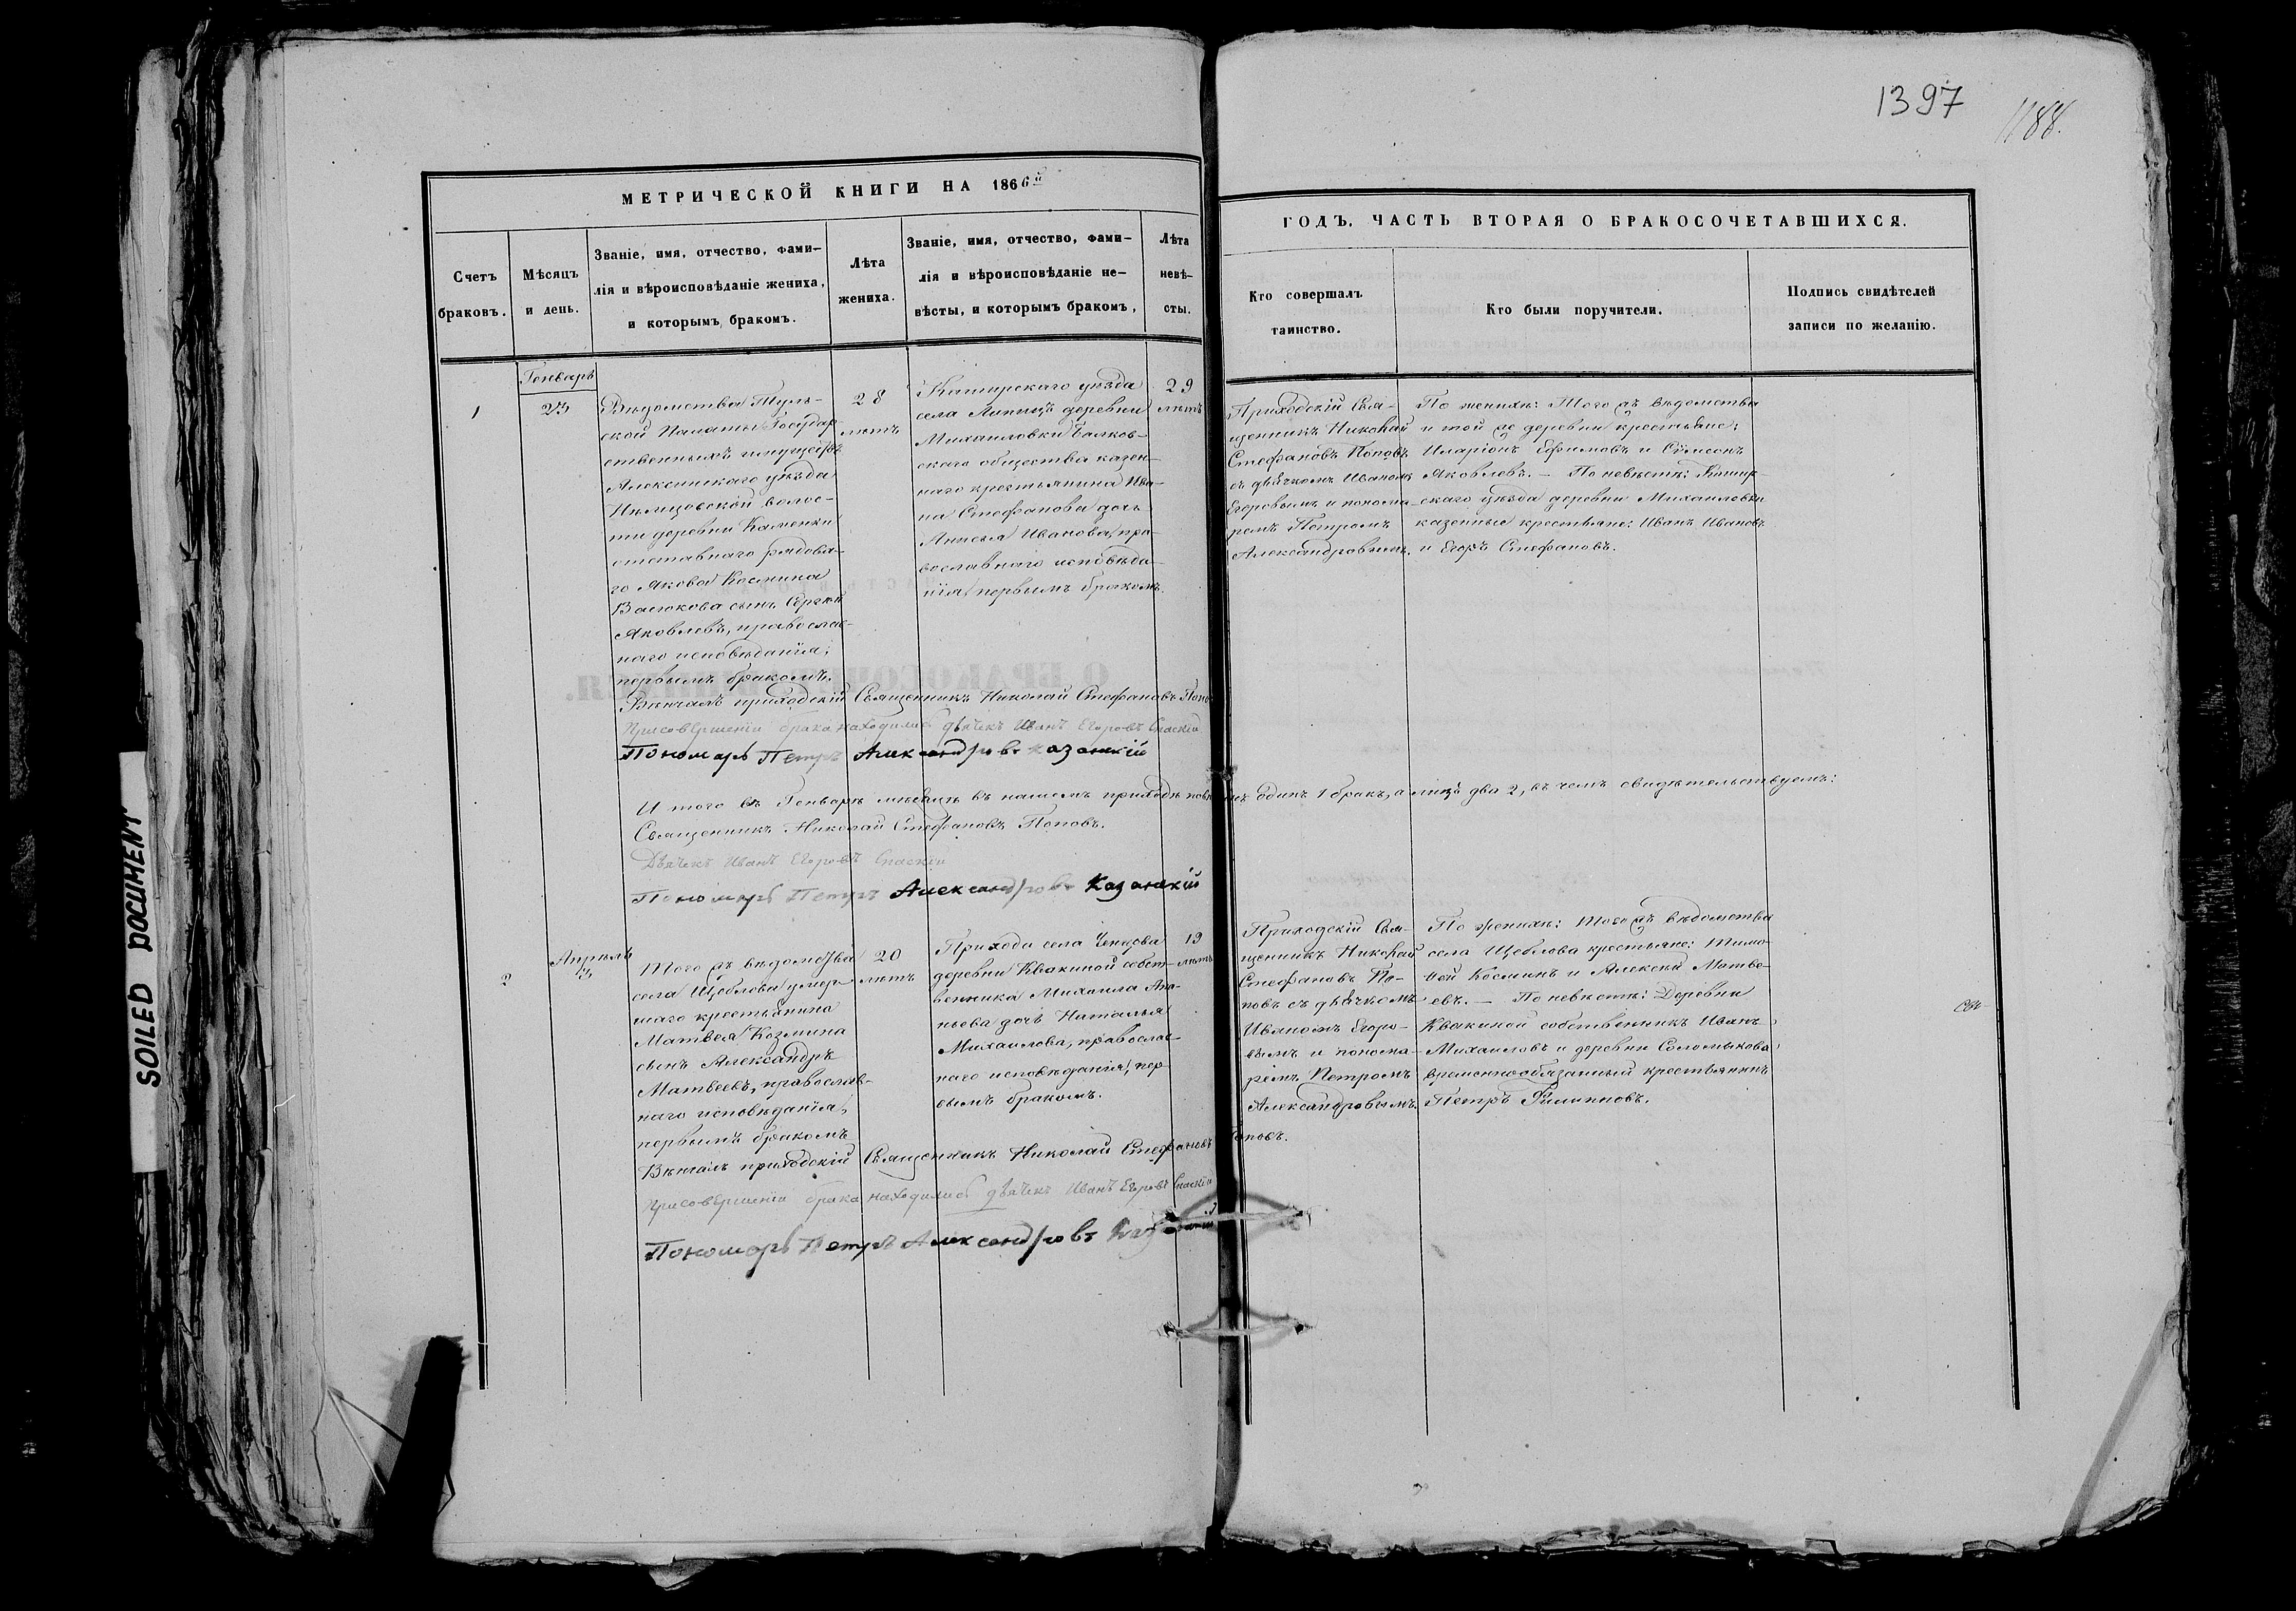 1397
1188.
SOILED DOCUMENT
МЕТРИЧЕСКОЙ КНИГИ НА 1866й
Счетъ
браковъ.
Мѣсяцъ
и день.
Званіе, имя, отчество, фами-
лія и вѣроисповѣданіе жениха,
и которымъ бракомъ.
Лѣта
жениха.
Званіе, имя, отчество, фами-
лія и вѣроисповѣданіе не-
вѣсты, и которымъ бракомъ,
Лѣта
невѣ-
сты.
ГОДЪ, ЧАСТЬ ВТОРАЯ О БРАКОСОЧЕТАВШИХСЯ.
Кто совершалъ
таинство.
Кто были поручители.
Подпись свидѣтелей
записи по желанію.
1
Генварь
Вѣдомства Туль-
ской Палаты Государ-
ственныхъ имуществъ
Алексинскаго уѣзда
волос-
ти деревни Каменки
отставнаго рядова-
го Якова Космина
Васюкова сынъ Сергѣй
Яковлевъ, православ-
наго исповѣданія,
первымъ бракомъ.
28
лѣтъ
Каширскаго уѣзда
села Липицъ деревни
Михаиловки
скаго общества казен-
наго крестьянина Ива-
на Стефанова дочь
Иванова, пра-
вославнаго исповѣда-
нія, первымъ бракомъ.
29
лѣтъ
Приходскій Свя-
щенникъ Николай
Стефановъ Поповъ
съ дьячкомъ Иваномъ
Егоровымъ и понома-
ремъ Петромъ
Александровымъ.
По женихѣ: Того жъ вѣдомства
и той же деревни крестьяне:
Иларіонъ Ефимовъ и Сѵмеонъ
Яковлевъ. — По невѣстѣ: Кашир-
скаго уѣзда деревни Михаиловки
казенные крестьяне: Иванъ Ивановъ
и Егоръ Стефановъ.
Вѣнчалъ приходскій Священникъ Николай Стефановъ
При совершеніи брака находились дьячекъ Иванъ Егоровъ Спаскій
Пономарь Петръ Александровъ Казанскій
И того въ Генварѣ мѣсяцѣ въ нашемъ приходѣ одинъ 1 бракъ, а лицъ два 2, въ чемъ свидѣтельствуемъ:
Священникъ Николай Стефановъ Поповъ.
Дьячекъ Иванъ Егоровъ Спаскій
Пономарь Петръ Александровъ Казанскій
2
Апрѣль
Того жъ вѣдомства
села Щеблова умер-
шаго крестьянина
Матвея Козмина
сынъ Александръ
Матвеевъ, православ-
наго исповѣданія,
первымъ бракомъ
20
лѣтъ
Прихода села Ченцова
деревни Квакиной собст-
венника Михаила Ана-
ньева дочь Наталья
Михаилова, православ-
наго исповѣданія, пер-
вымъ бракомъ.
19
лѣтъ
Приходскій Свя-
щенникъ Николай
Стефановъ По-
повъ съ дьячкомъ
Иваномъ Егоро-
вымъ и понома-
ремъ Петромъ
Александровымъ.
По женихѣ: Того жъ вѣдомства
села Щеблова крестьяне: Тимо-
ѳей Косминъ и Алексѣй Матве-
евъ. — По невѣстѣ: Деревни
Квакиной собственникъ Иванъ
Михаиловъ и деревни Соломыкова
временнообязанный крестьянинъ
Петръ Филипповъ.
Вѣнчалъ приходскій Священникъ Николай Стефановъ Поповъ.
При совершеніи брака находились дьячекъ Иванъ Егоровъ Спаскій
Пономарь Петръ Александровъ Казанскій